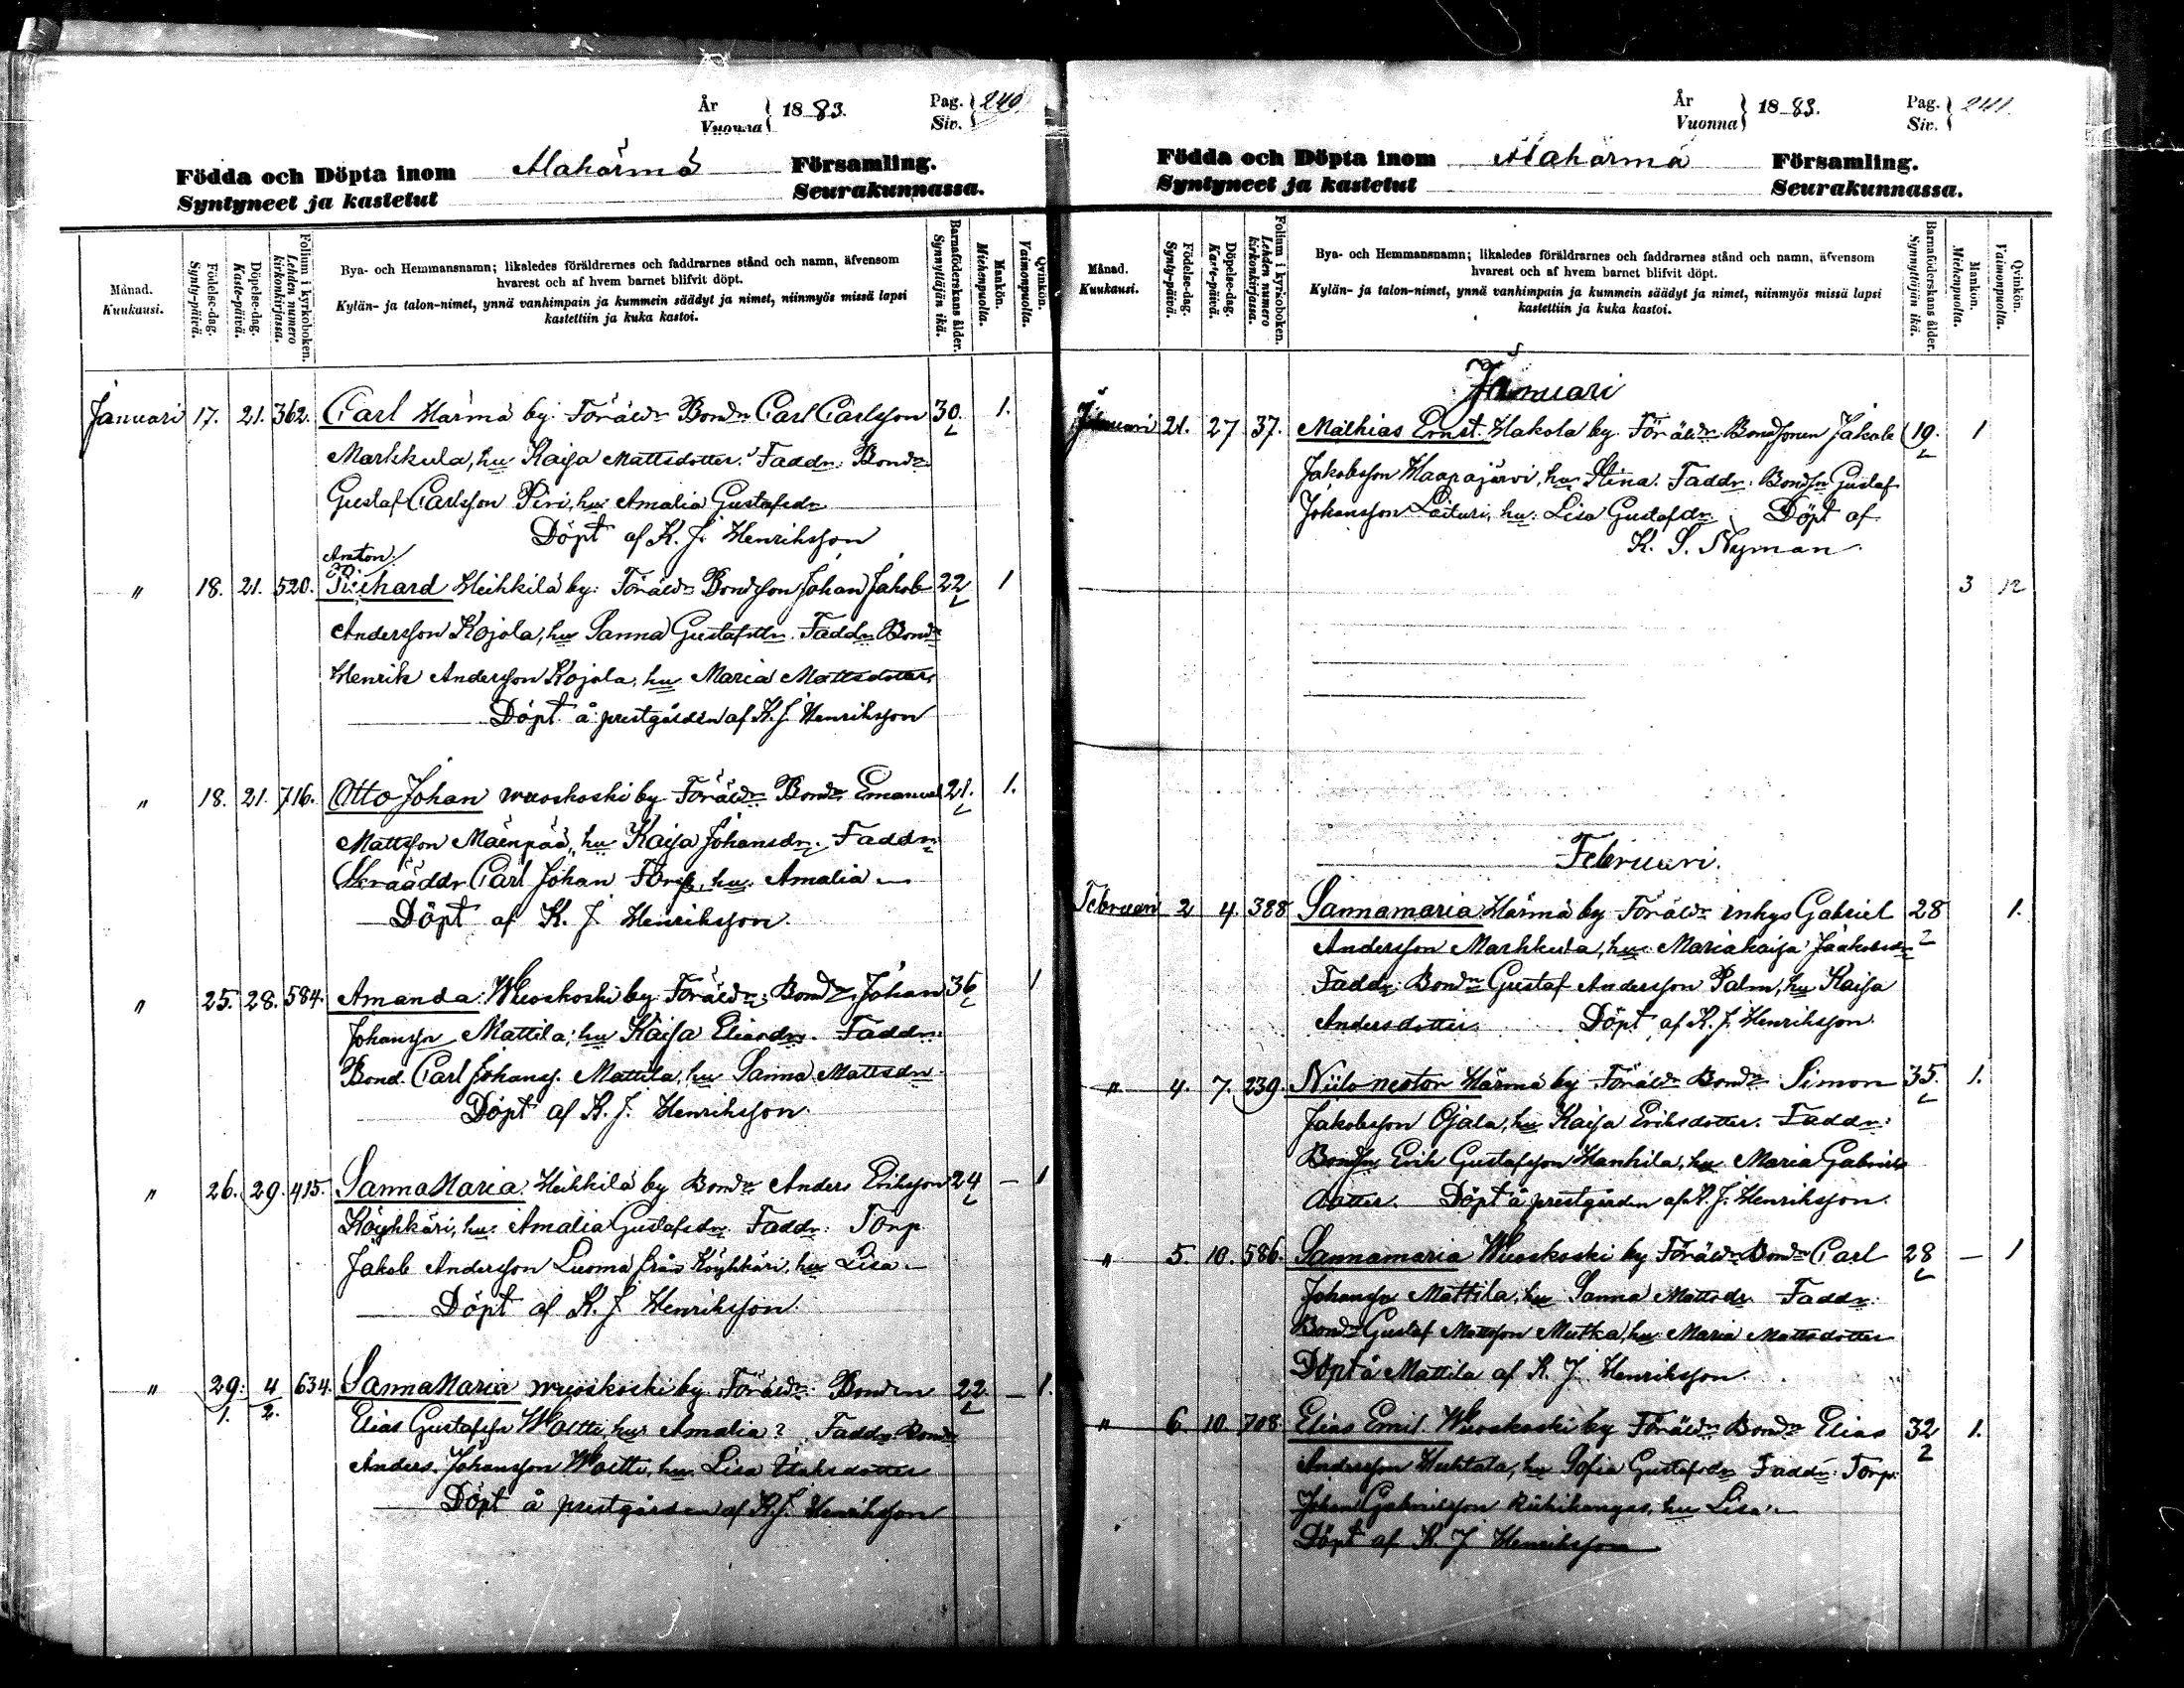 År
Vuonna
1883.
Pag.
Siv.
240
Födda och Döpta inom Alahärmä Församling.
Syntyneet ja kastetut Seurakunnassa.
Månad.
Kuukausi.
Födelse-dag.
Synty-päivä.
Döpelse-dag.
Kaste-päivä.
Folium i kyrkoboken.
Lehden numero kirkonkirjassa.
Bya- och Hemmansnamn; likaledes föräldrarnes och faddrarnes stånd och namn, äfvensom
hvarest och af hvem barnet blifvit döpt.
Kylän- ja talon-nimet, ynnä vanhimpain ja kummein säädyt ja nimet, niinmyös missä lapsi
kastettiin ja kuka kastoi.
Barnaföderskans ålder.
Synnyttäjän ikä.
Mankön.
Miehenpuolta.
Qvinkön.
Vaimonpuolta.
Januari 17. 21. 362. Carl Härmä by. Föräldr Bondn Carl Carlsson 30. 1.
Markkula, hu Kaisa Mattsdotter. Faddr: Bondn
Gustaf Carlsson Piri, hu Amalia Gustafsdr
Döpt af K. J. Henriksson
Anton
" 18. 21. 520. Richard Heikkilä by: Föräldr Bondsson Johan Jakob 22 1
Andersson Kojola, hu Sanna Gustafsdtr. Faddr Bondn
Henrik Andersson Kojola, hu Maria Mattsdotter
Döpt å prestgården af K. J. Henriksson
" 18. 21. 716. Otto Johan Wuoskoski by Föräldr Bondn Emanuel 21. 1.
Mattsson Mäenpää, hu Kaisa Johansdr. Faddr:
Skräddr Carl Johan Fors, hu. Amalia
Döpt af K. J. Henriksson.
" 25. 28. 584. Amanda. Wuoskoski by. Föräldr: Bondn Johan 36 1
Johansson Mattila, hu Kaisa Eliasdr. Faddr:
Bond. Carl Johans. Mattila, hu Sanna Mattsdr
Döpt af K. J. Henriksson.
" 26. 29. 415. Sanna Maria. Heikkilä by Bondn Anders Eriksson 24 – 1
Köyhkäri, hu. Amalia Gustafsdr. Faddr: Torp
Jakob Andersson Luoma från Köyhkäri, hu Lisa
Döpt af K. J. Henriksson.
" 29. 4 634. Sanna Maria Wuoskoski by Föräldr: Bonden 22. – 1.
1. 2.
Elias Gustafsson Woltti, hu Amalia? Faddr Bondn
Anders Johansson Woltti, hu. Lisa Isaksdotter
Döpt å prestgården af K. J. Henriksson
År
Vuonna
1883.
Pag.
Siv.
241.
Födda och Döpta inom Alahärmä Församling.
Syntyneet ja kastetut Seurakunnassa.
Månad.
Kuukausi.
Födelse-dag.
Synty-päivä.
Döpelse-dag.
Kaste-päivä.
Folium i kyrkoboken.
Lehden numero kirkonkirjassa.
Bya- och Hemmansnamn; likaledes föräldrarnes och faddrarnes stånd och namn, äfvensom
hvarest och af hvem barnet blifvit döpt.
Kylän- ja talon-nimet, ynnä vanhimpain ja kummein säädyt ja nimet, niinmyös missä lapsi
kastettiin ja kuka kastoi.
Barnaföderskans ålder.
Synnyttäjän ikä.
Mankön.
Miehenpuolta.
Qvinkön.
Vaimonpuolta.
Januari
Januari 21. 27 37. Mathias Ernst. Hakola by. Föräldr. Bondsonen Jakob 19. 1
Jakobsson Haapajärvi, hu Stina. Faddr: Bondsn Gustaf
Johansson Laituri, hu. Lisa Gustafsdr Döpt af
K. S. Nyman
3 12
Februari.
Februari 2 4. 388 Sannamaria Härmä by Föräldr inhys Gabriel 28 1.
Andersson Markkula, hu. Mariakaisa Jaakobsdr
Faddr: Bondn Gustaf Andersson Palm, hu Kaisa
Andersdotter. Döpt af K. J. Henriksson.
" 4. 7. 239. Niilo nestor Härmä by Föräldr Bondn Simon 35. 1.
Jakobsson Ojala, hu Kaisa Eriksdotter. Faddr:
Bondsn Erik Gustafsson Hankila, hu Maria Gabriels
dotter. Döpt å prestgården af K. J. Henriksson.
" 5. 10. 586. Sannamaria Wuoskoski by Föräldr Bondn Carl 28 – 1
Johansson Mattila, hu Sanna Mattsdr. Faddr:
Bondn Gustaf Mattsson Mutka, hu Maria Mattsdotter
Döpt å Mattila af K. J. Henriksson.
" 6. 10. 708 Elias Emil. Wuoskoski by Föräldr Bondn Elias 32 1.
Andersson Huhtala, hu Sofia Gustafsdr Faddr: Torp.
Johan Gabrielsson Riihikangas, hu Lisa
Döpt af K. J Henriksson